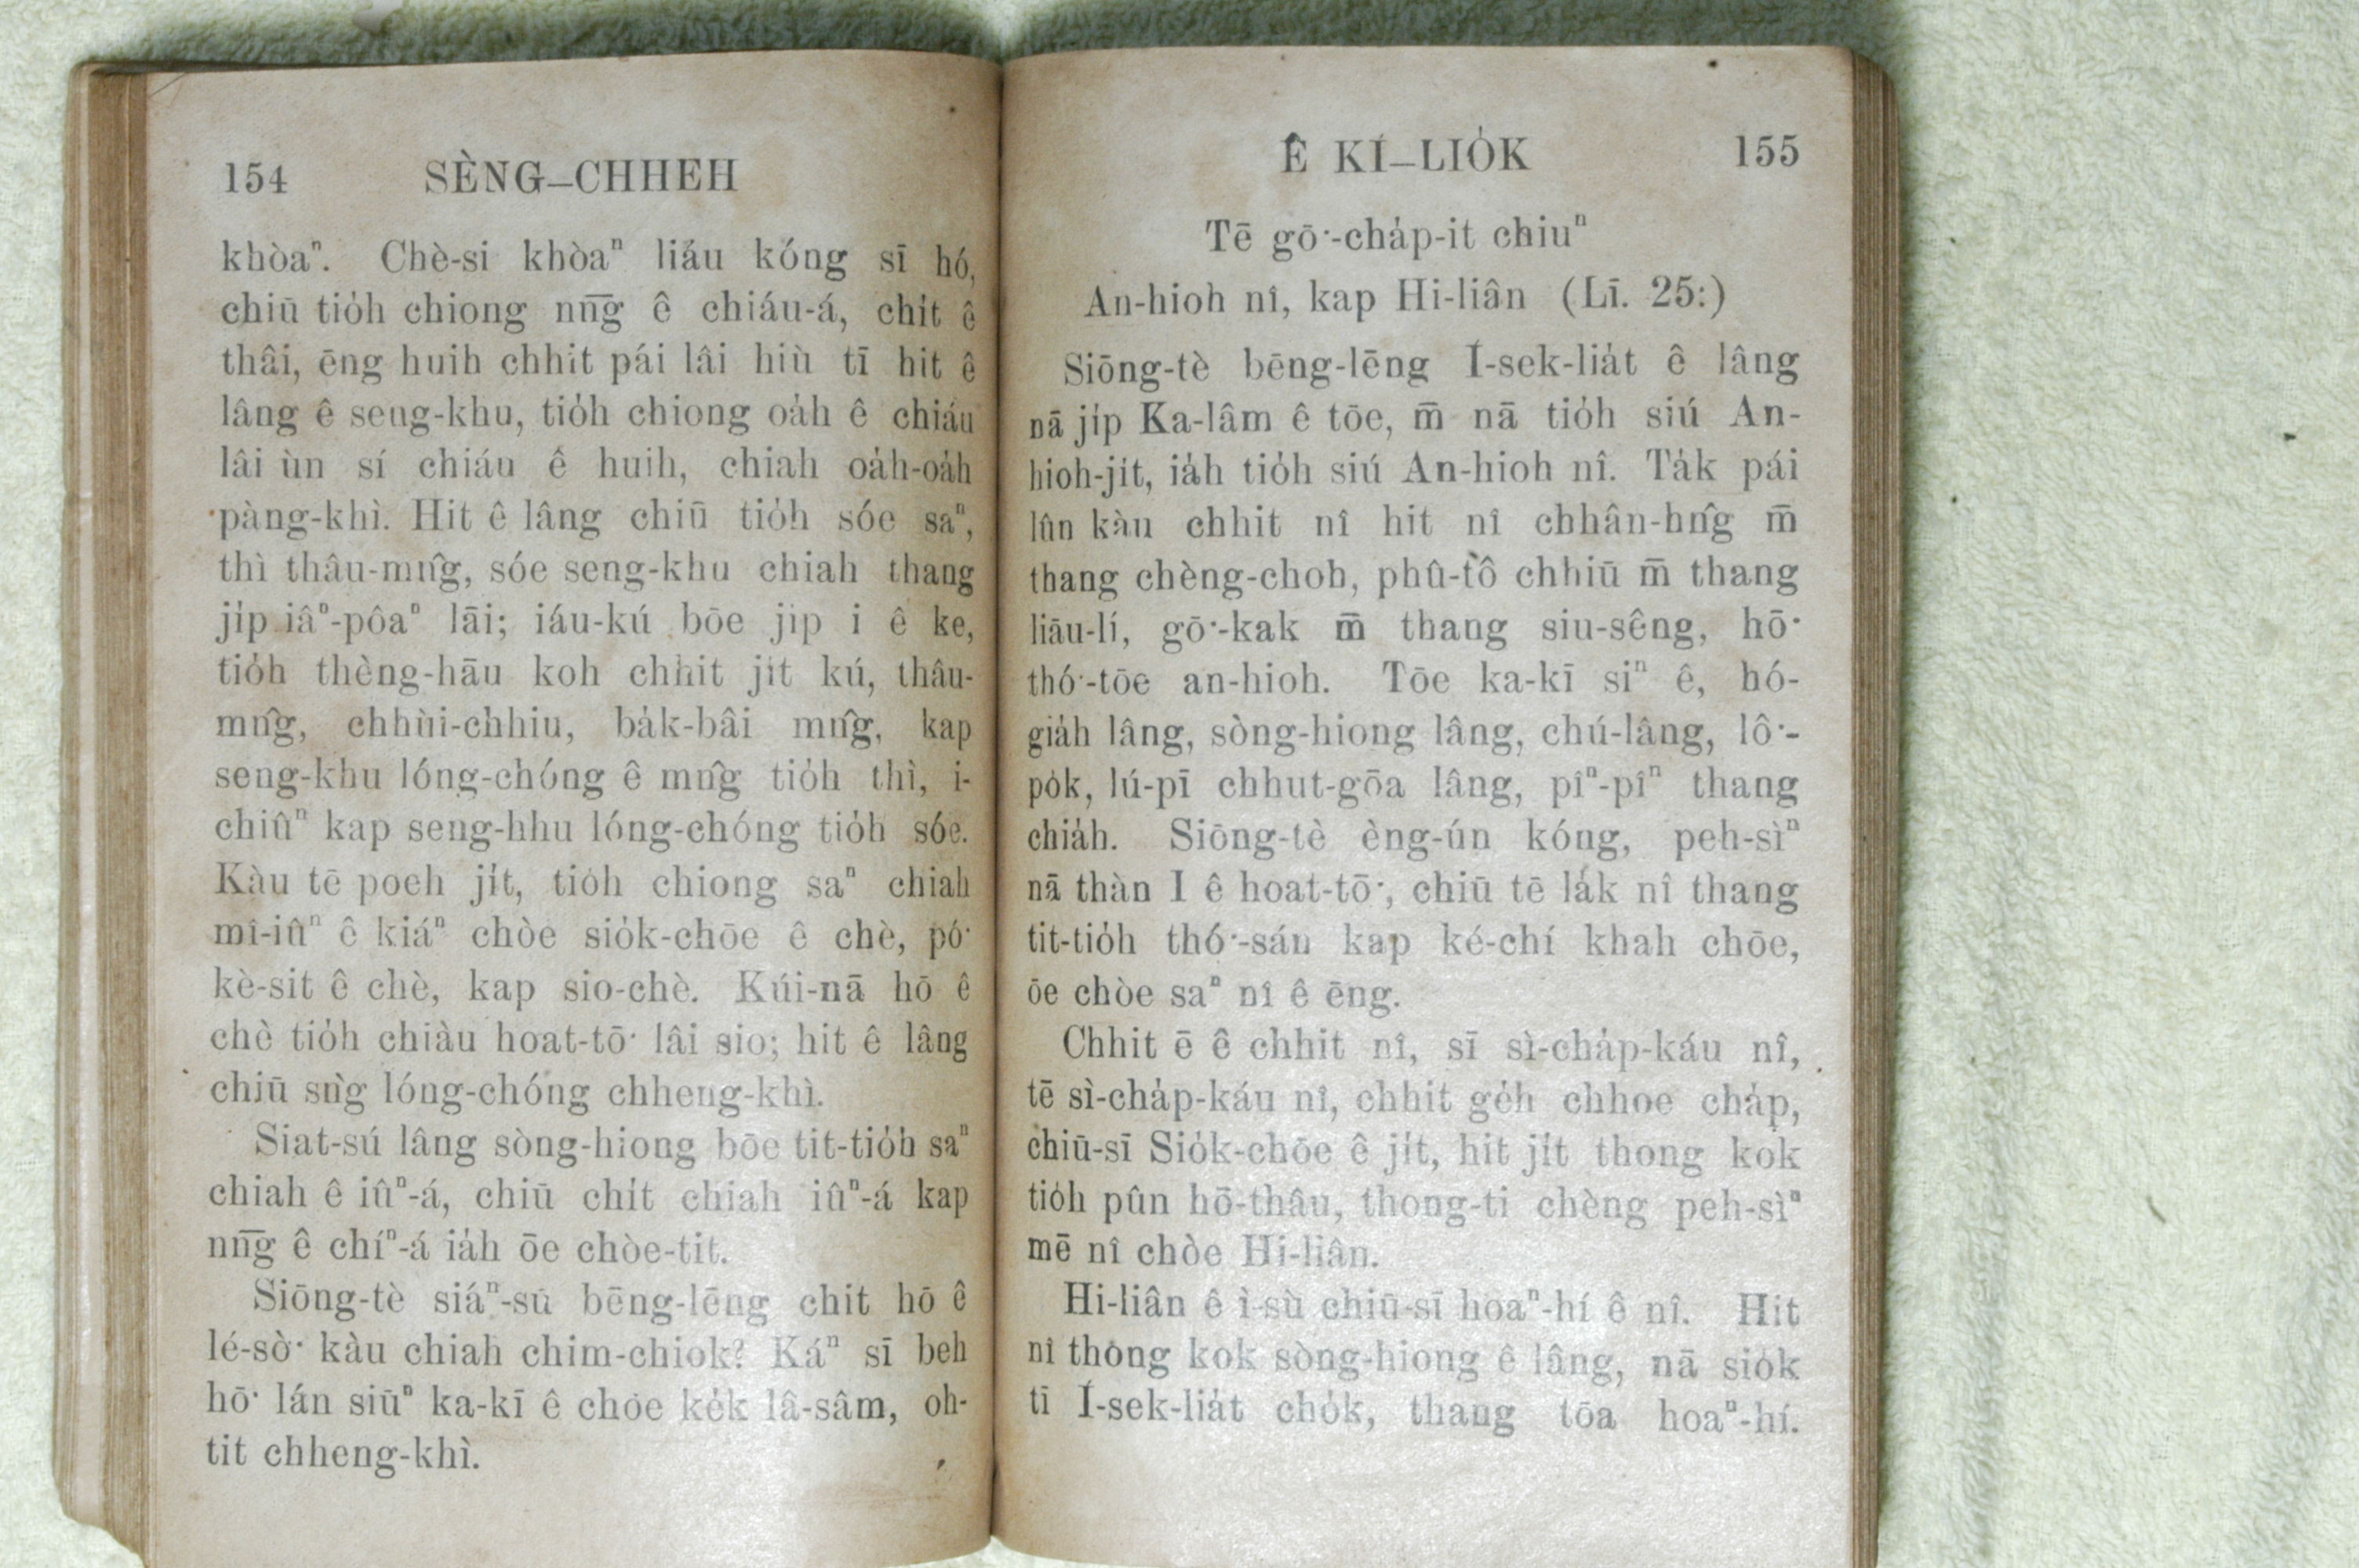 154 SÈNG–CHHEH
khòaⁿ. Chè-si khòaⁿ liáu kóng sī hó,
chiū tio̍h chiong nn̄g ê chiáu-á, chi̍t ê
thâi, ēng huih chhit pái lâi hiù tī hit ê
lâng ê seng-khu, tio̍h chiong oa̍h ê chiáu
lâi ùn sí chiáu ê huih, chiah oa̍h-oa̍h
pàng-khì. Hit ê lâng chiū tio̍h sóe saⁿ,
thì thâu-mn̂g, sóe seng-khu chiah thang
ji̍p iâⁿ-pôaⁿ lāi; iáu-kú bōe ji̍p i ê ke,
tio̍h thèng-hāu koh chhit ji̍t kú, thâu-
mn̂g, chhùi-chhiu, ba̍k-bâi mn̂g, kap
seng-khu lóng-chóng ê mn̂g tio̍h thì, i-
chiûⁿ kap seng-hhu lóng-chóng tio̍h sóe.
Kàu tē poeh ji̍t, tio̍h chiong saⁿ chiah
mî-iûⁿ ê kiáⁿ chòe sio̍k-chōe ê chè, pó͘
kè-sit ê chè, kap sio-chè. Kúi-nā hō ê
chè tio̍h chiàu hoat-tō͘ lâi sio; hit ê lâng
chiū sǹg lóng-chóng chheng-khì.
Siat-sú lâng sòng-hiong bōe tit-tio̍h saⁿ
chiah ê iûⁿ-á, chiū chi̍t chiah iûⁿ-á kap
nn̄g ê chíⁿ-á ia̍h ōe chòe-tit.
Siōng-tè siáⁿ-sū bēng-lēng chit hō ê
lé-sò͘ kàu chiah chim-chiok? Káⁿ sī beh
hō͘ lán siūⁿ ka-kī ê chōe ke̍k lâ-sâm, oh-
tit chheng-khì.
Ê KÍ–LIO̍K 155
Tē gō͘-cha̍p-it chiuⁿ
An-hioh nî, kap Hi-liân (Lī. 25:)
Siōng-tè bēng-lēng Í-sek-lia̍t ê lâng
nā ji̍p Ka-lâm ê tōe, m̄ nā tio̍h siú An-
hioh-ji̍t, ia̍h tio̍h siú An-hioh nî. Ta̍k pái
lûn kàu chhit nî hit nî chhân-hn̂g m̄
thang chèng-choh, phû-tô chhiū m̄ thang
liāu-lí, gō͘-kak m̄ thang siu-sêng, hō͘
thó͘-tōe an-hioh. Tōe ka-kī siⁿ ê, hó-
gia̍h lâng, sòng-hiong lâng, chú-lâng, lô͘-
po̍k, lú-pī chhut-gōa lâng, pîⁿ-pîⁿ thang
chia̍h. Siōng-tè èng-ún kóng, peh-sìⁿ
nā thàn I ê hoat-tō͘, chiū tē la̍k nî thang
tit-tio̍h thó͘-sán kap ké-chí khah chōe,
ōe chòe saⁿ nî ê ēng.
Chhit ē ê chhit nî, sī sì-cha̍p-káu nî,
tē sì-cha̍p-káu nî, chhit ge̍h chhoe cha̍p,
chiū-sī Sio̍k-chōe ê ji̍t, hit ji̍t thong kok
tio̍h pûn hō-thâu, thong-ti chèng peh-sìⁿ
mē nî chòe Hi-liân.
Hi-liân ê ì-sù chiū-sī hoaⁿ-hí ê nî. Hit
nî thong kok sòng-hiong ê lâng, nā sio̍k
tī Í-sek-lia̍t cho̍k, thang tōa hoaⁿ-hí.